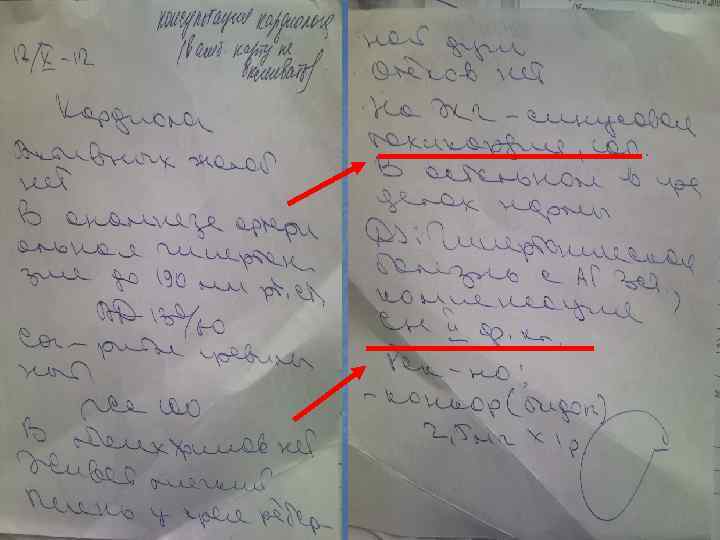 12/X-12
консультация кардиолога
(в амб. карту не
вклеивать)
Кардиолог
Активных жалоб
нет
В анамнезе артери
альная гипертен
зия до 190 мм рт.ст.
АД 130/80
Cor-ритм правиль
ный
ЧСС 100
В легких хрипов нет
Живот мягкий
Печень у края рёбер-
ной дуги
Отёков нет
На ЭКГ-синусовая
тахикардия, 100.
В остальном в пре
делах нормы
DS: Гипертоническая
болезнь с АГ 3 ст.,
компенсация
СН II ф.кл.
Рек-но:
-конкор (бидоп)
2,5мг х 1р